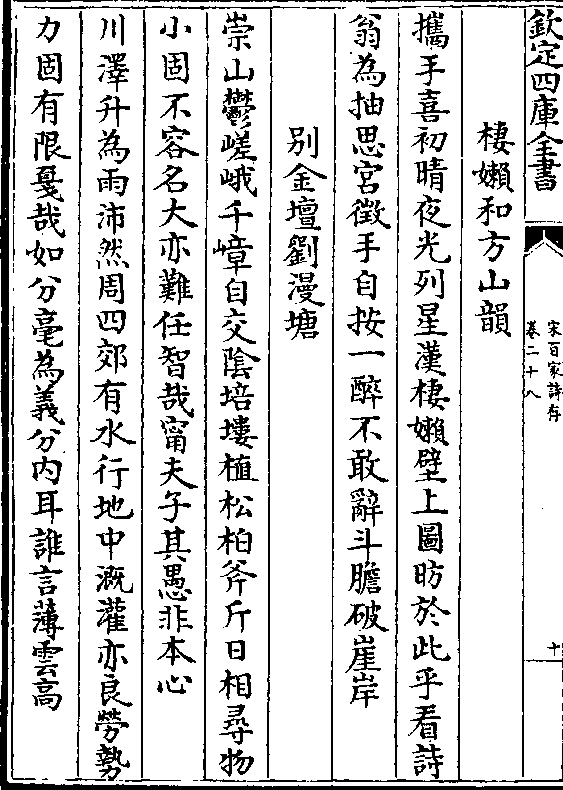 欽定四庫全書
宋百家詩存
卷二十八
十
棲嬾和方山韻
攜手喜初晴夜光列星漢棲嬾壁上圖昉於此乎看詩
翁為抽思宮徵手自按一醉不敢辭斗膽破崖岸
別金壇劉漫塘
崇山鬱嵯峨千嶂自交陰培塿植松柏斧斤日相尋物
小固不容名大亦難任智哉甯夫子其愚非本心
川澤升為雨沛然周四郊有水行地中溉灌亦良勞勢
力固有限戛哉如分毫為義分內耳誰言薄雲高